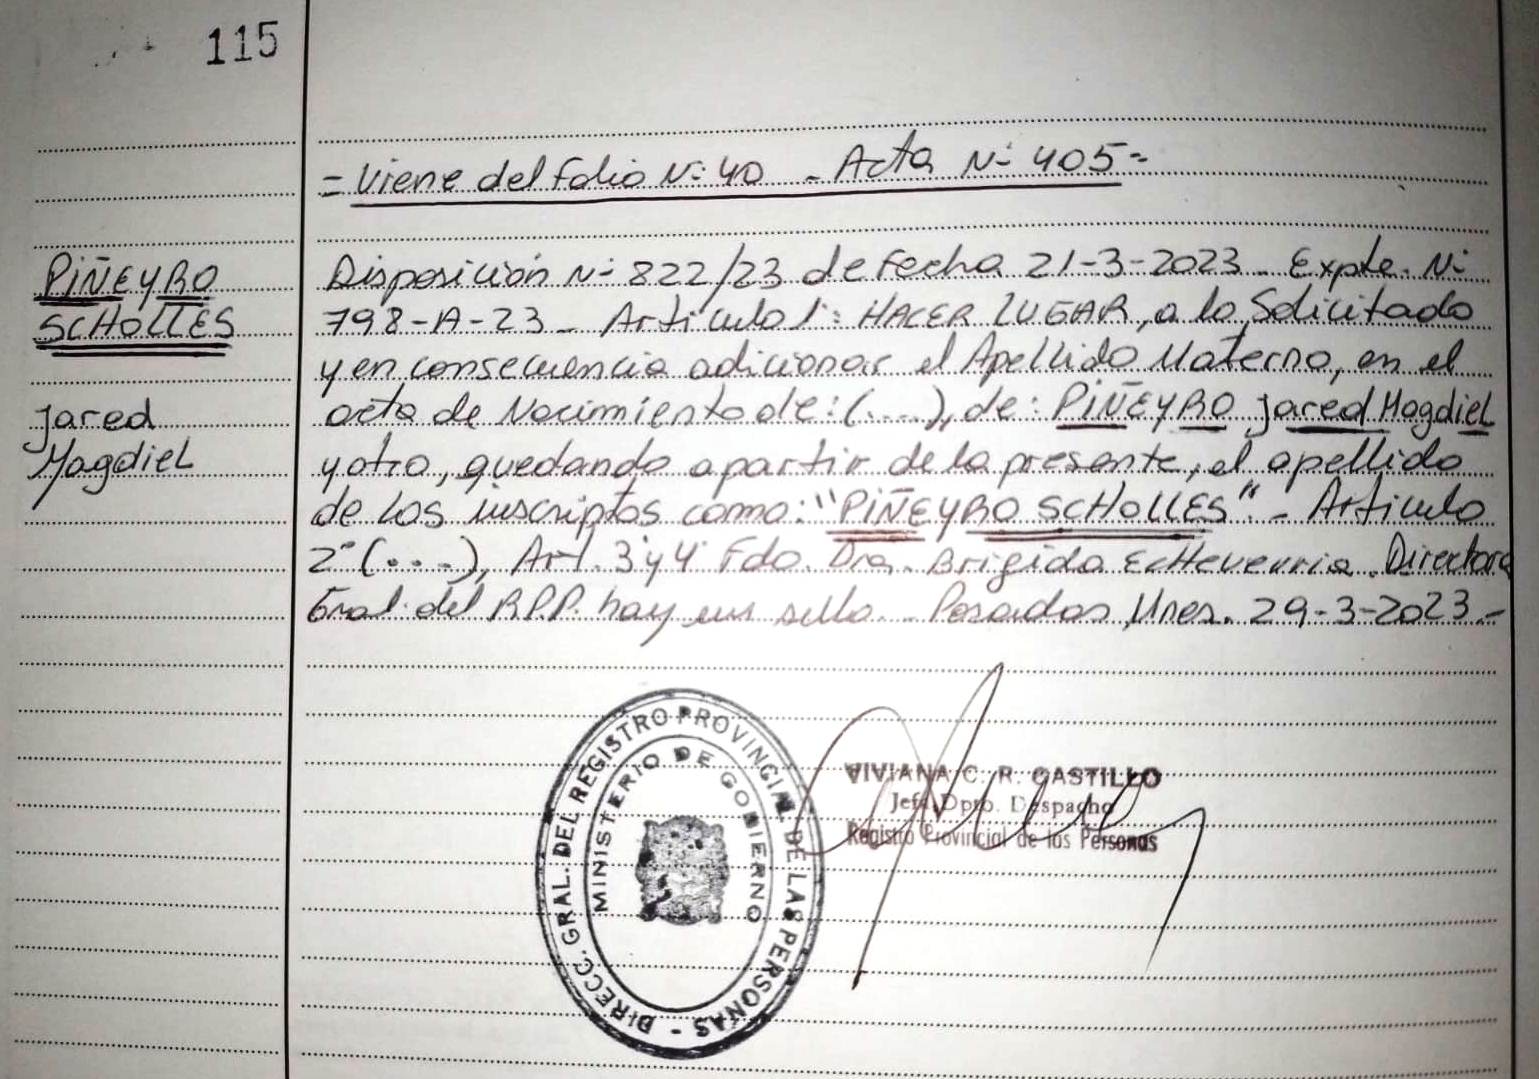 115
= Viene del folio N: 40 - Acta N: 405 =
PIÑEYRO
SCHOLLES
Jared
Magdiel
Disposición N: 822/23 de fecha 21-3-2023 - Expte. N:
798-A-23 - Artículo 1: HACER LUGAR, a lo Solicitado
y en consecuencia adicionar el Apellido Materno, en el
acta de Nacimiento de: (....), de: PIÑEYRO Jared Magdiel
y otro, quedando a partir de la presente, el apellido
de los inscriptos como: "PIÑEYRO SCHOLLES". - Artículo
2° (....), Art. 3 y 4 Fdo. Dra. Brigida Echeverria. Directora
Gral. del R.P.P. hay un sello. - Posadas, Mnes. 29-3-2023.-
DIRECC. GRAL. DEL REGISTRO PROVINCIAL DE LAS PERSONAS -
MINISTERIO DE GOBIERNO
VIVIANA C. R. CASTILLO
Jefa Dpto. Despacho
Registro Provincial de las Personas